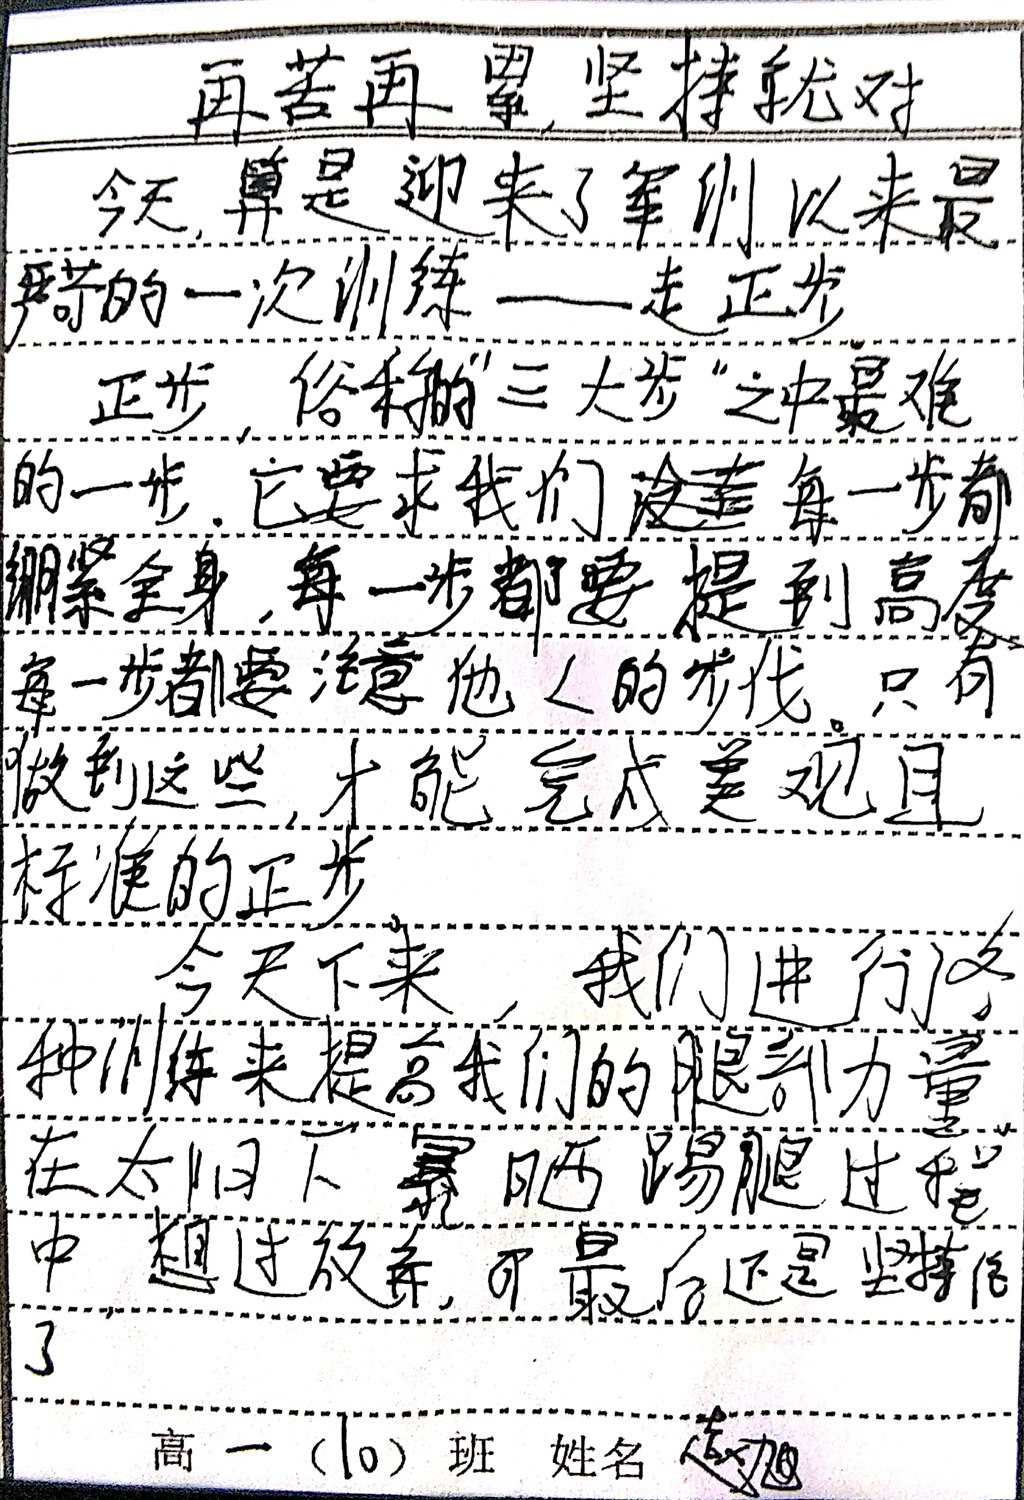 再苦再累,坚持就对
今天,算是迎来了军训以来最
严苛的一次训练——走正步
正步,俗称的"三大步"之中最难
的一步.它要求我们 每一步都
绷紧全身,每一步都要提到高度
每一步都要注意他人的步伐。只有
做到这些,才能完成美观且
标准的正步
今天下来,我们进行了各
种训练来提高我们的腿部力量
在太阳下暴晒踢腿过程
中,想过放弃,可最后还是坚持住
了
高一(10)班 姓名 赵旭